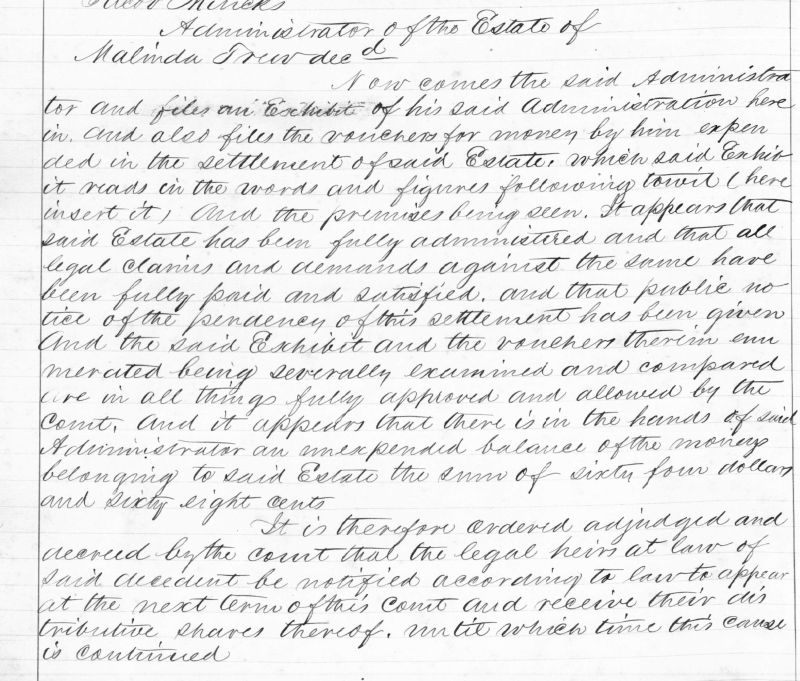 Jacob Mincks
Administrator of the Estate of
Malinda Trew decd
Now comes the said Administra
tor and files an Exhibit of his said Administration here
in. And also files the vouchers for money by him expen
ded in the settlement of said Estate. which said Exhib
it reads in the words and figures following towit (here
insert it) And the premises being seen. It appears that
said Estate has been fully administered and that all
legal claims and demands against the same have
been fully paid and satisfied. and that public no
tice of the pendency of this settlement has been given
And the said Exhibit and the vouchers therein enu
merated being severally examined and compared
are in all things fully approved and allowed by the
Court. And it appears that there is in the hands of said
Administrator an unexpended balance of the moneys
belonging to said Estate the sum of sixty four dollars
and sixty eight cents
It is therefore ordered adjudged and
decreed by the court that the legal heirs at law of
said decedent be notified according to law to appear
at the next term of this court and receive their dis
tributive shares thereof. until which time this cause
is continued